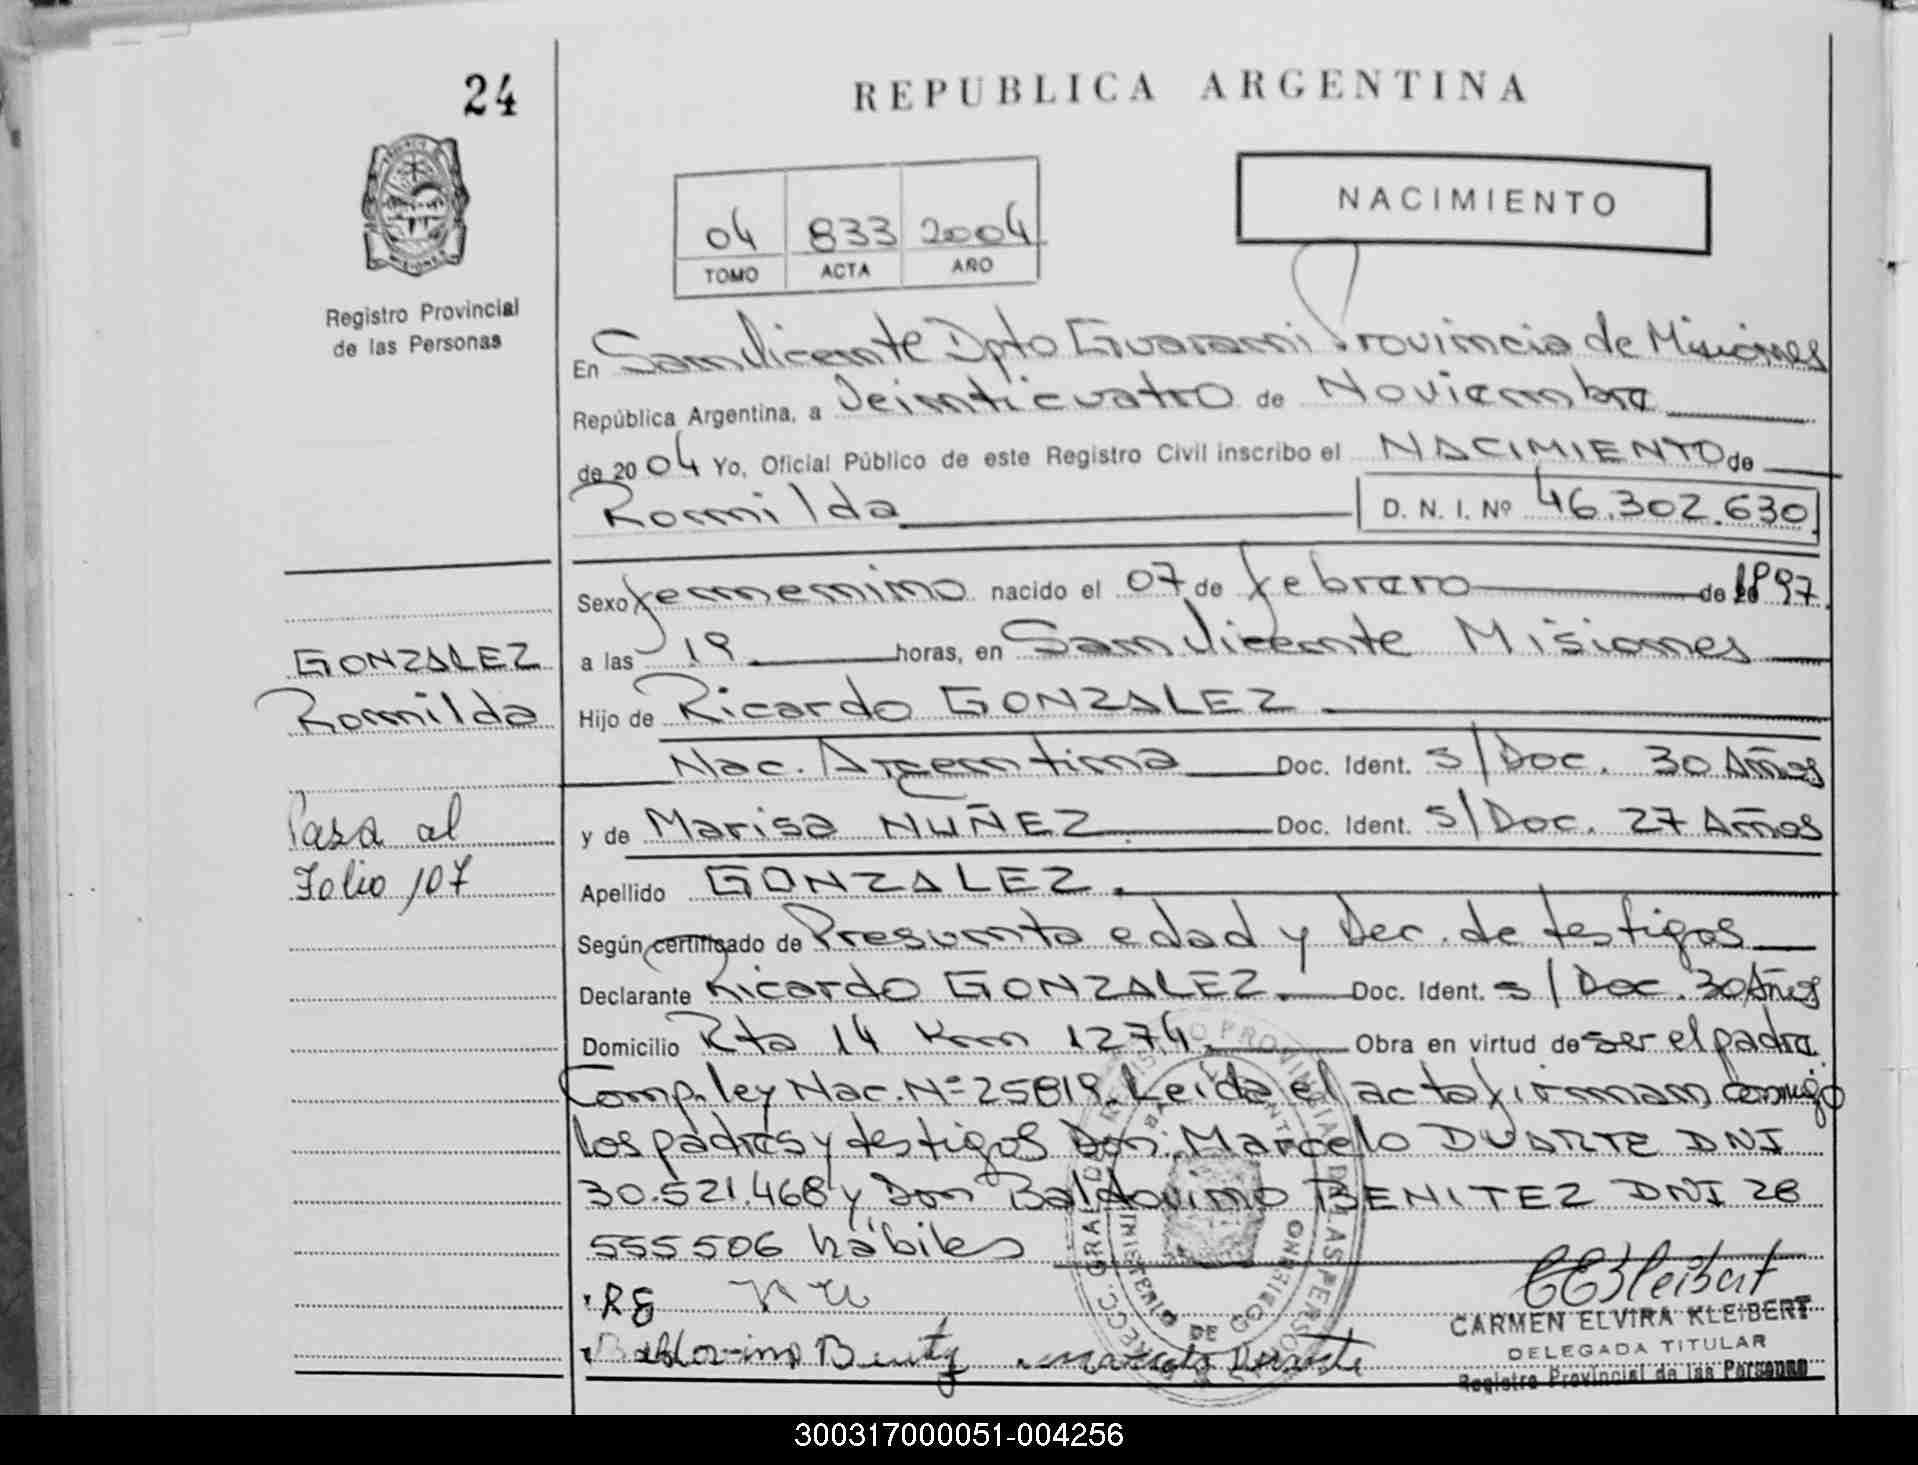 24
REPUBLICA ARGENTINA
NACIMIENTO
04 833 2004
TOMO ACTA AÑO
MISIONES
Registro Provincial
de las Personas
En San Vicente Dpto Guarani Provincia de Misiones
República Argentina, a Veinticuatro de Noviembre
de 2004 Yo, Oficial Público de este Registro Civil inscribo el NACIMIENTO de
Romilda D. N. I. Nº 46.302.630
Sexo femenino nacido el 07 de febrero de 1997
a las 19 horas, en San Vicente Misiones
Hijo de Ricardo GONZALEZ
Nac. Argentina Doc. Ident. s/Doc. 30 Años
y de Marisa NUÑEZ Doc. Ident. s/Doc. 27 Años
Apellido GONZALEZ.
Según certificado de Presunta edad y Dec. de testigos
Declarante Ricardo GONZALEZ. Doc. Ident. s/Doc. 30 Años
Domicilio Rta 14 Km 1274. Obra en virtud de ser el padre
Comp. ley Nac. Nº 25819. Leida el acta firman conmigo
los padres y testigos Don: Marcelo DUARTE DNI
30.521.468 y Don Baldovino BENITEZ DNI 28
555506 hábiles
GONZALEZ
Romilda
Pasa al
Folio 107
RG NU
Baldovino Benitez Marcelo Duarte
CEKleibert
CARMEN ELVIRA KLEIBERT
DELEGADA TITULAR
Registro Provincial de las Personas
MINISTERIO DE GOBIERNO
300317000051-004256